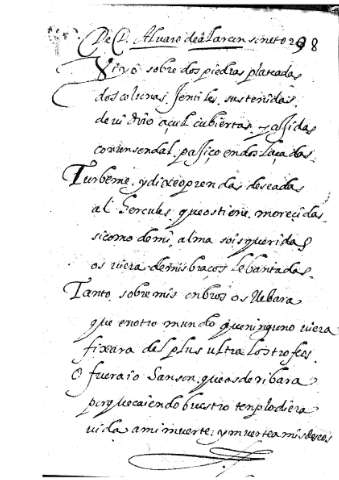 De D. Alvaro de alarcon soneto 298
Vi yo sobre dos piedras plateadas
dos colunas Jentiles sustenidas
de vidrio açul cubiertas y asidas
con un sendal paxiço en dos laçadas
Turbeme. y dixe o prendas deseadas
al Hercules que os tiene mereçidas
si como de mi alma sois queridas
os viera de mis braços lebantadas
Tanto sobre mis onbros os llebara
que en otro mundo que ninguno viera
fixara del plus ultra los trofeos
O fuera io Sanson, que os deribara
porque caiendo buestro templo diera
vida a mi muerte, y muerte a mis deseos